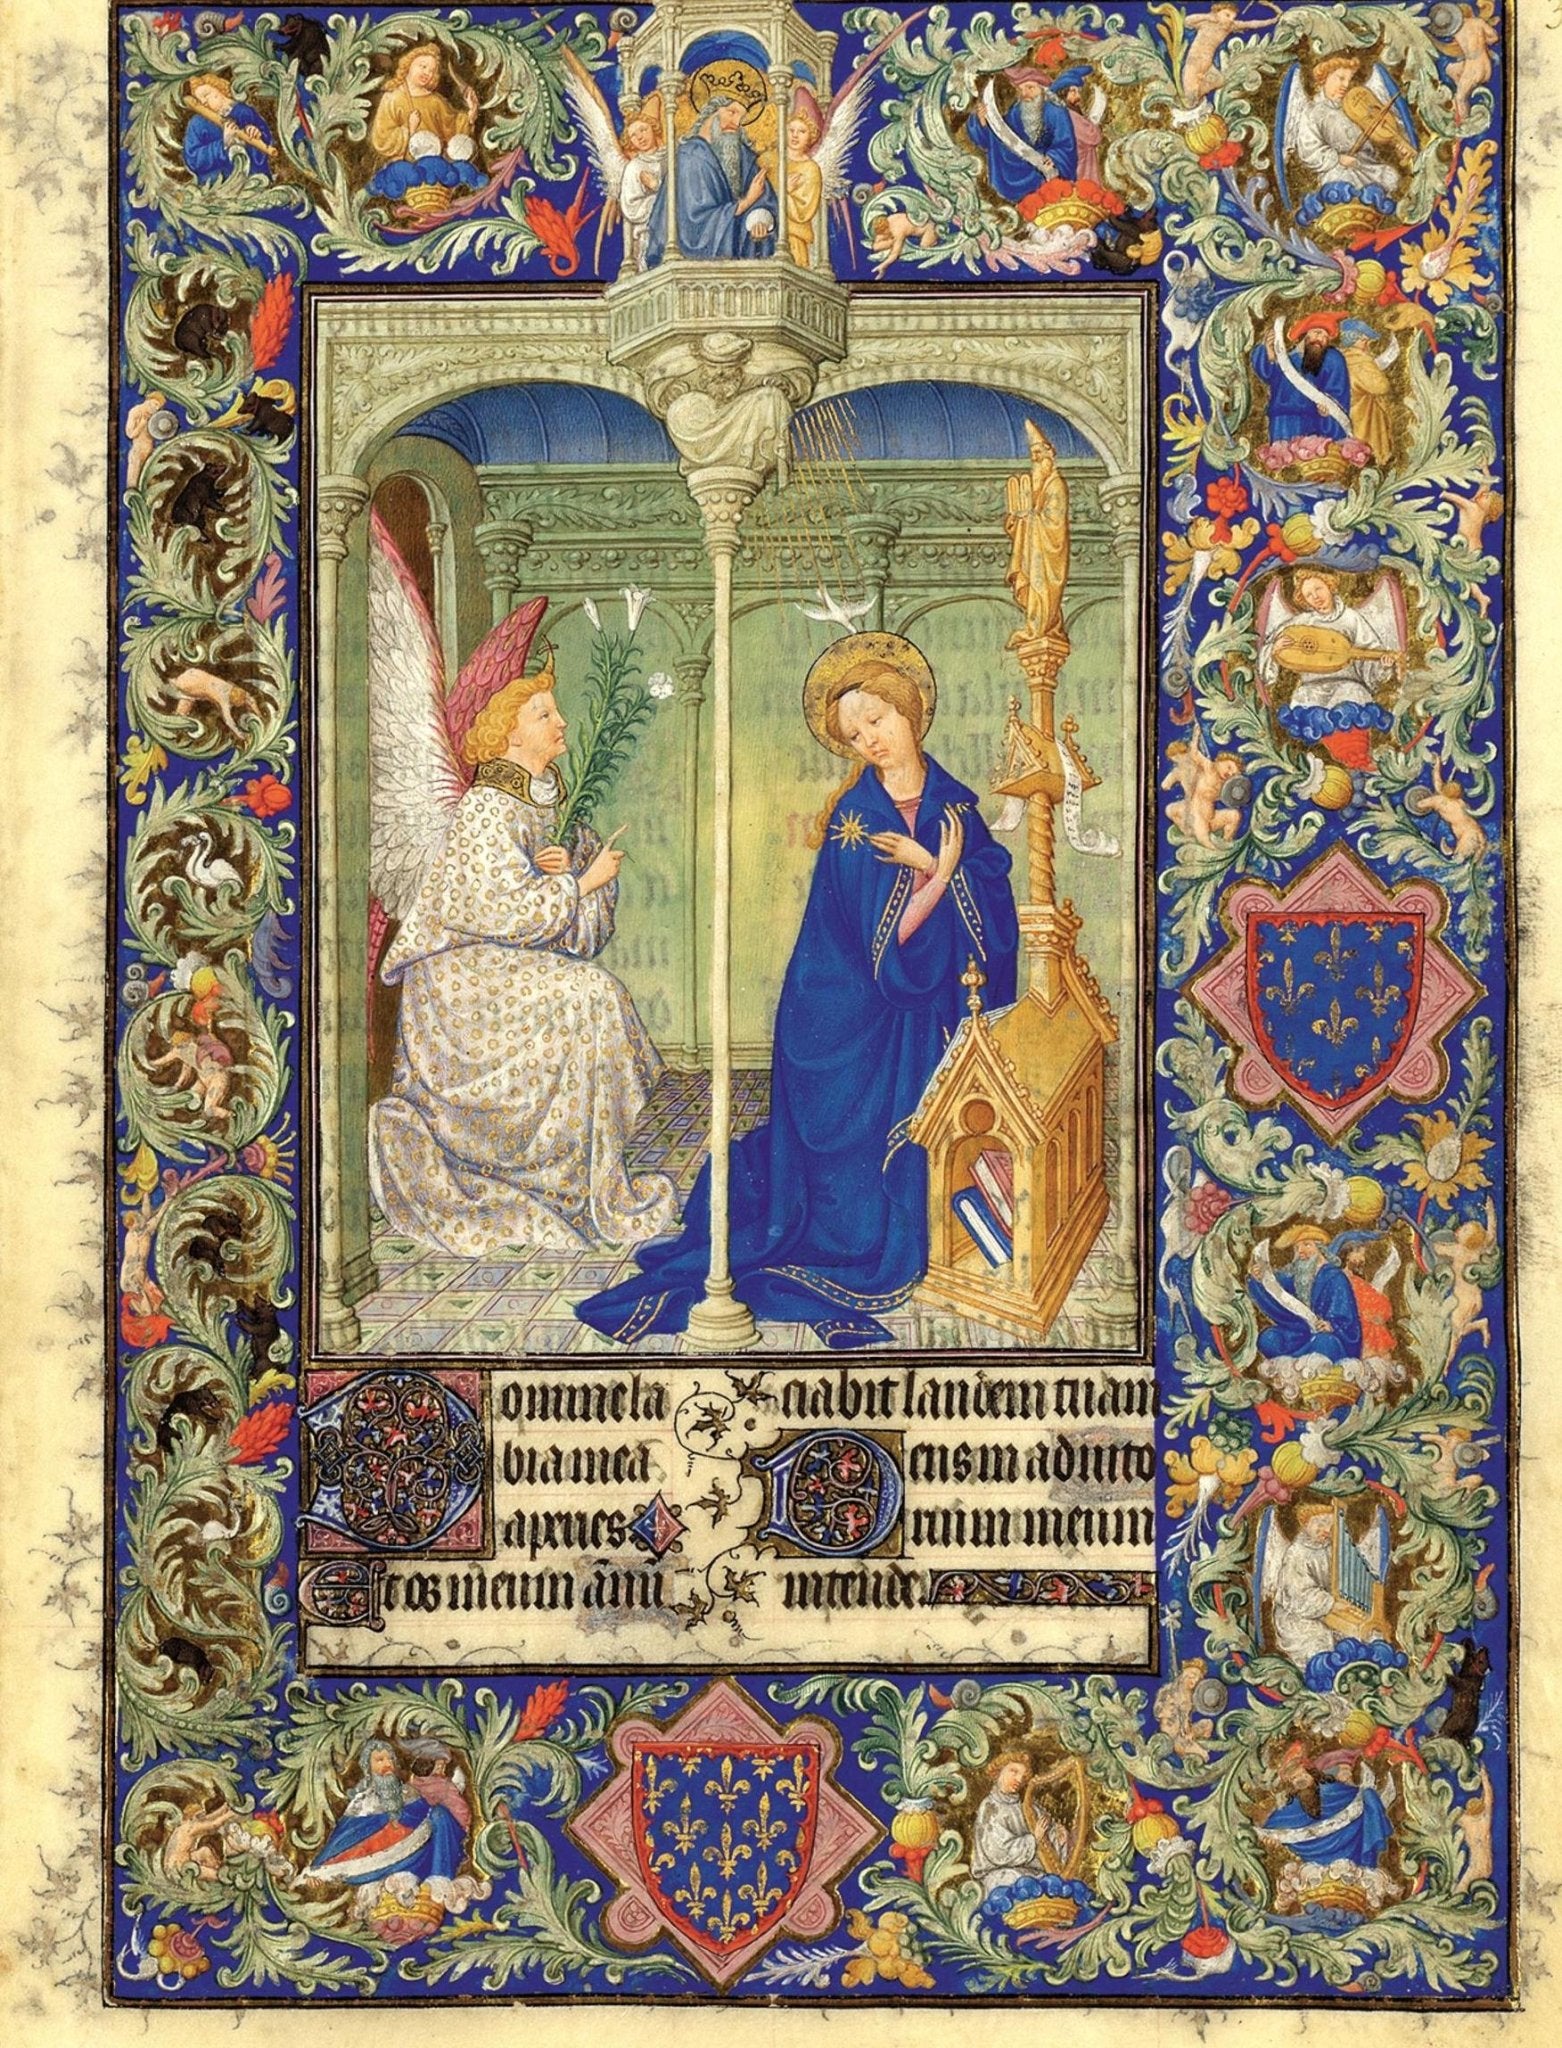 Domine la
bia mea
aperies
Et os meum annū
ciabit laudem tuam
Deus in adiuto
rium meum
intende.